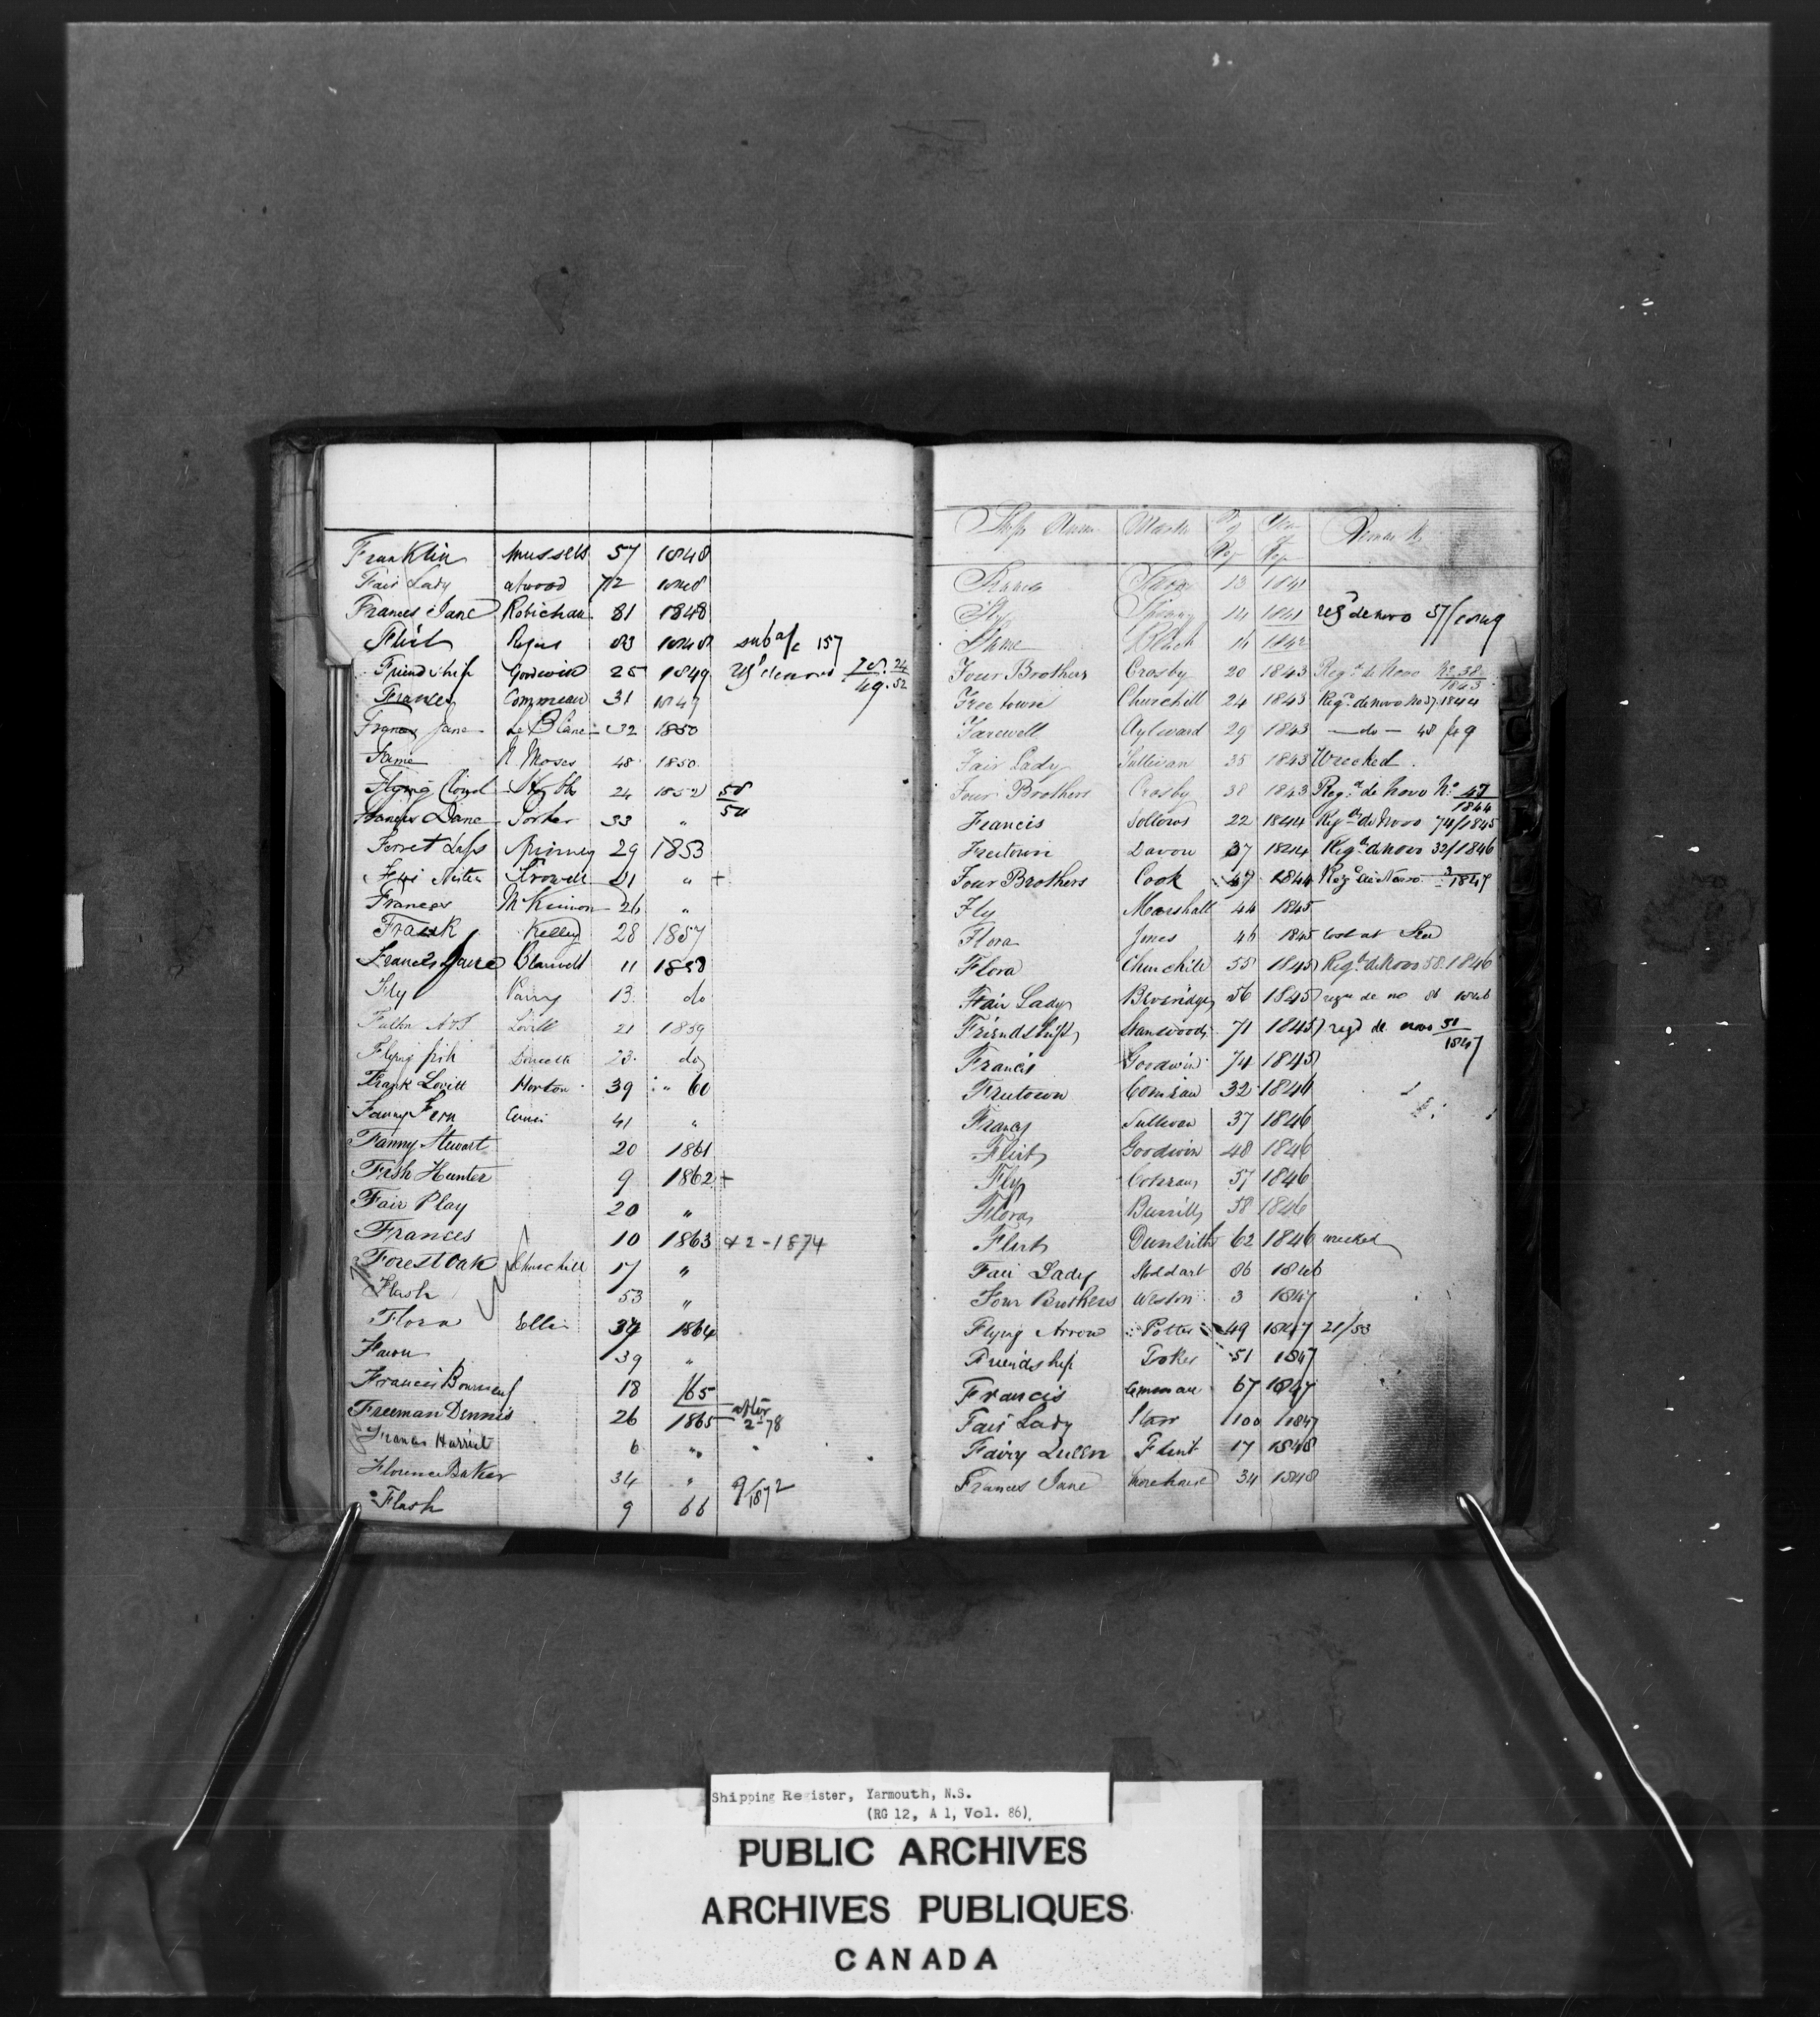 Franklin Mussels 57 1848
Fair Lady Atwood 72 1848
Frances Jane Robichau 81 1848
Flirt 83 1848 sub a/c 157
Friendship Goodwin 25 1849
Frances Commeau 31 1849
Frances Jane Le Blanc 32 1850
Fame N Moses 48 1850
Flying Cloud 24 1852 58/54
Frances Jane Porter 33 "
Forret Lass Kinney 29 1853
Crowell 21 " +
Frances McKinnon 26 "
Frank Kelley 28 1857
Frances Jane Blauvelt 11 1858
Fly Parry 13 do
Lovitt 21 1859
Flying fish Doucett 23 do
Frank Lovitt Horton 39 " 60
Fanny Fern 41 "
Fanny Stewart 20 1861
Fish Hunter 9 1862 +
Fair Play 20 "
Frances 10 1863 & 2-1874
Forest Oak Churchill 17 "
Flash 53 "
Flora Ellis 37 1864
Fawn 39 "
Francis Bourneuf 18 /65
Freeman Dennis 26 1865 after 2-78
Frances Harriet 6 "
Florence Baker 34 " 9/1872
Flash 9 66
Ship's Name Master No of Reg Year of Reg Remarks
13 1841
Fly 14 1841 regd de novo 57/1849
Fame 14 1842
Four Brothers Crosby 20 1843 Regd de Novo No 38/1843
Freetown Churchill 24 1843 Regd de novo No 37 1844
Farewell Aylward 29 1843 — do — 48/49
Fair Lady Sullivan 35 1843 Wrecked.
Four Brothers Crosby 38 1843 Regd de Novo No 47/1844
Francis Sollows 22 1844 Regd de Novo 74/1845
Freetown Davou 37 1844 Regd de Novo 32/1846
Four Brothers Cook 47 1844 Regd de Novo 3/1847
Fly Marshall 44 1845
Flora Jones 46 1845 lost at Sea
Flora Churchill 55 1845 Regd de Novo 58. 1846
Fair Lady Beveridge 56 1845 regd de no 86 1846
Friendship Stanwood 71 1845 regd de novo 51/1847
Francis Goodwin 74 1845
Freetown Comeau 32 1846
Francis Sullivan 37 1846
Flirt Goodwin 48 1846
Fly Cochran 57 1846
Flora Burrill 58 1846
Flirt 62 1846 wrecked
Fair Lady Stoddart 86 1846
Four Brothers Weston 3 1847
Flying Arrow Potter 49 1847 21/53
Friendship Tooker 51 1847
Francis 67 1847
Fair Lady Starr 100 1847
Fairy Queen Flint 17 1848
Frances Jane Morehouse 34 1848
Shipping Register, Yarmouth, N.S.
(RG 12, A 1, Vol. 86).
PUBLIC ARCHIVES
ARCHIVES PUBLIQUES
CANADA